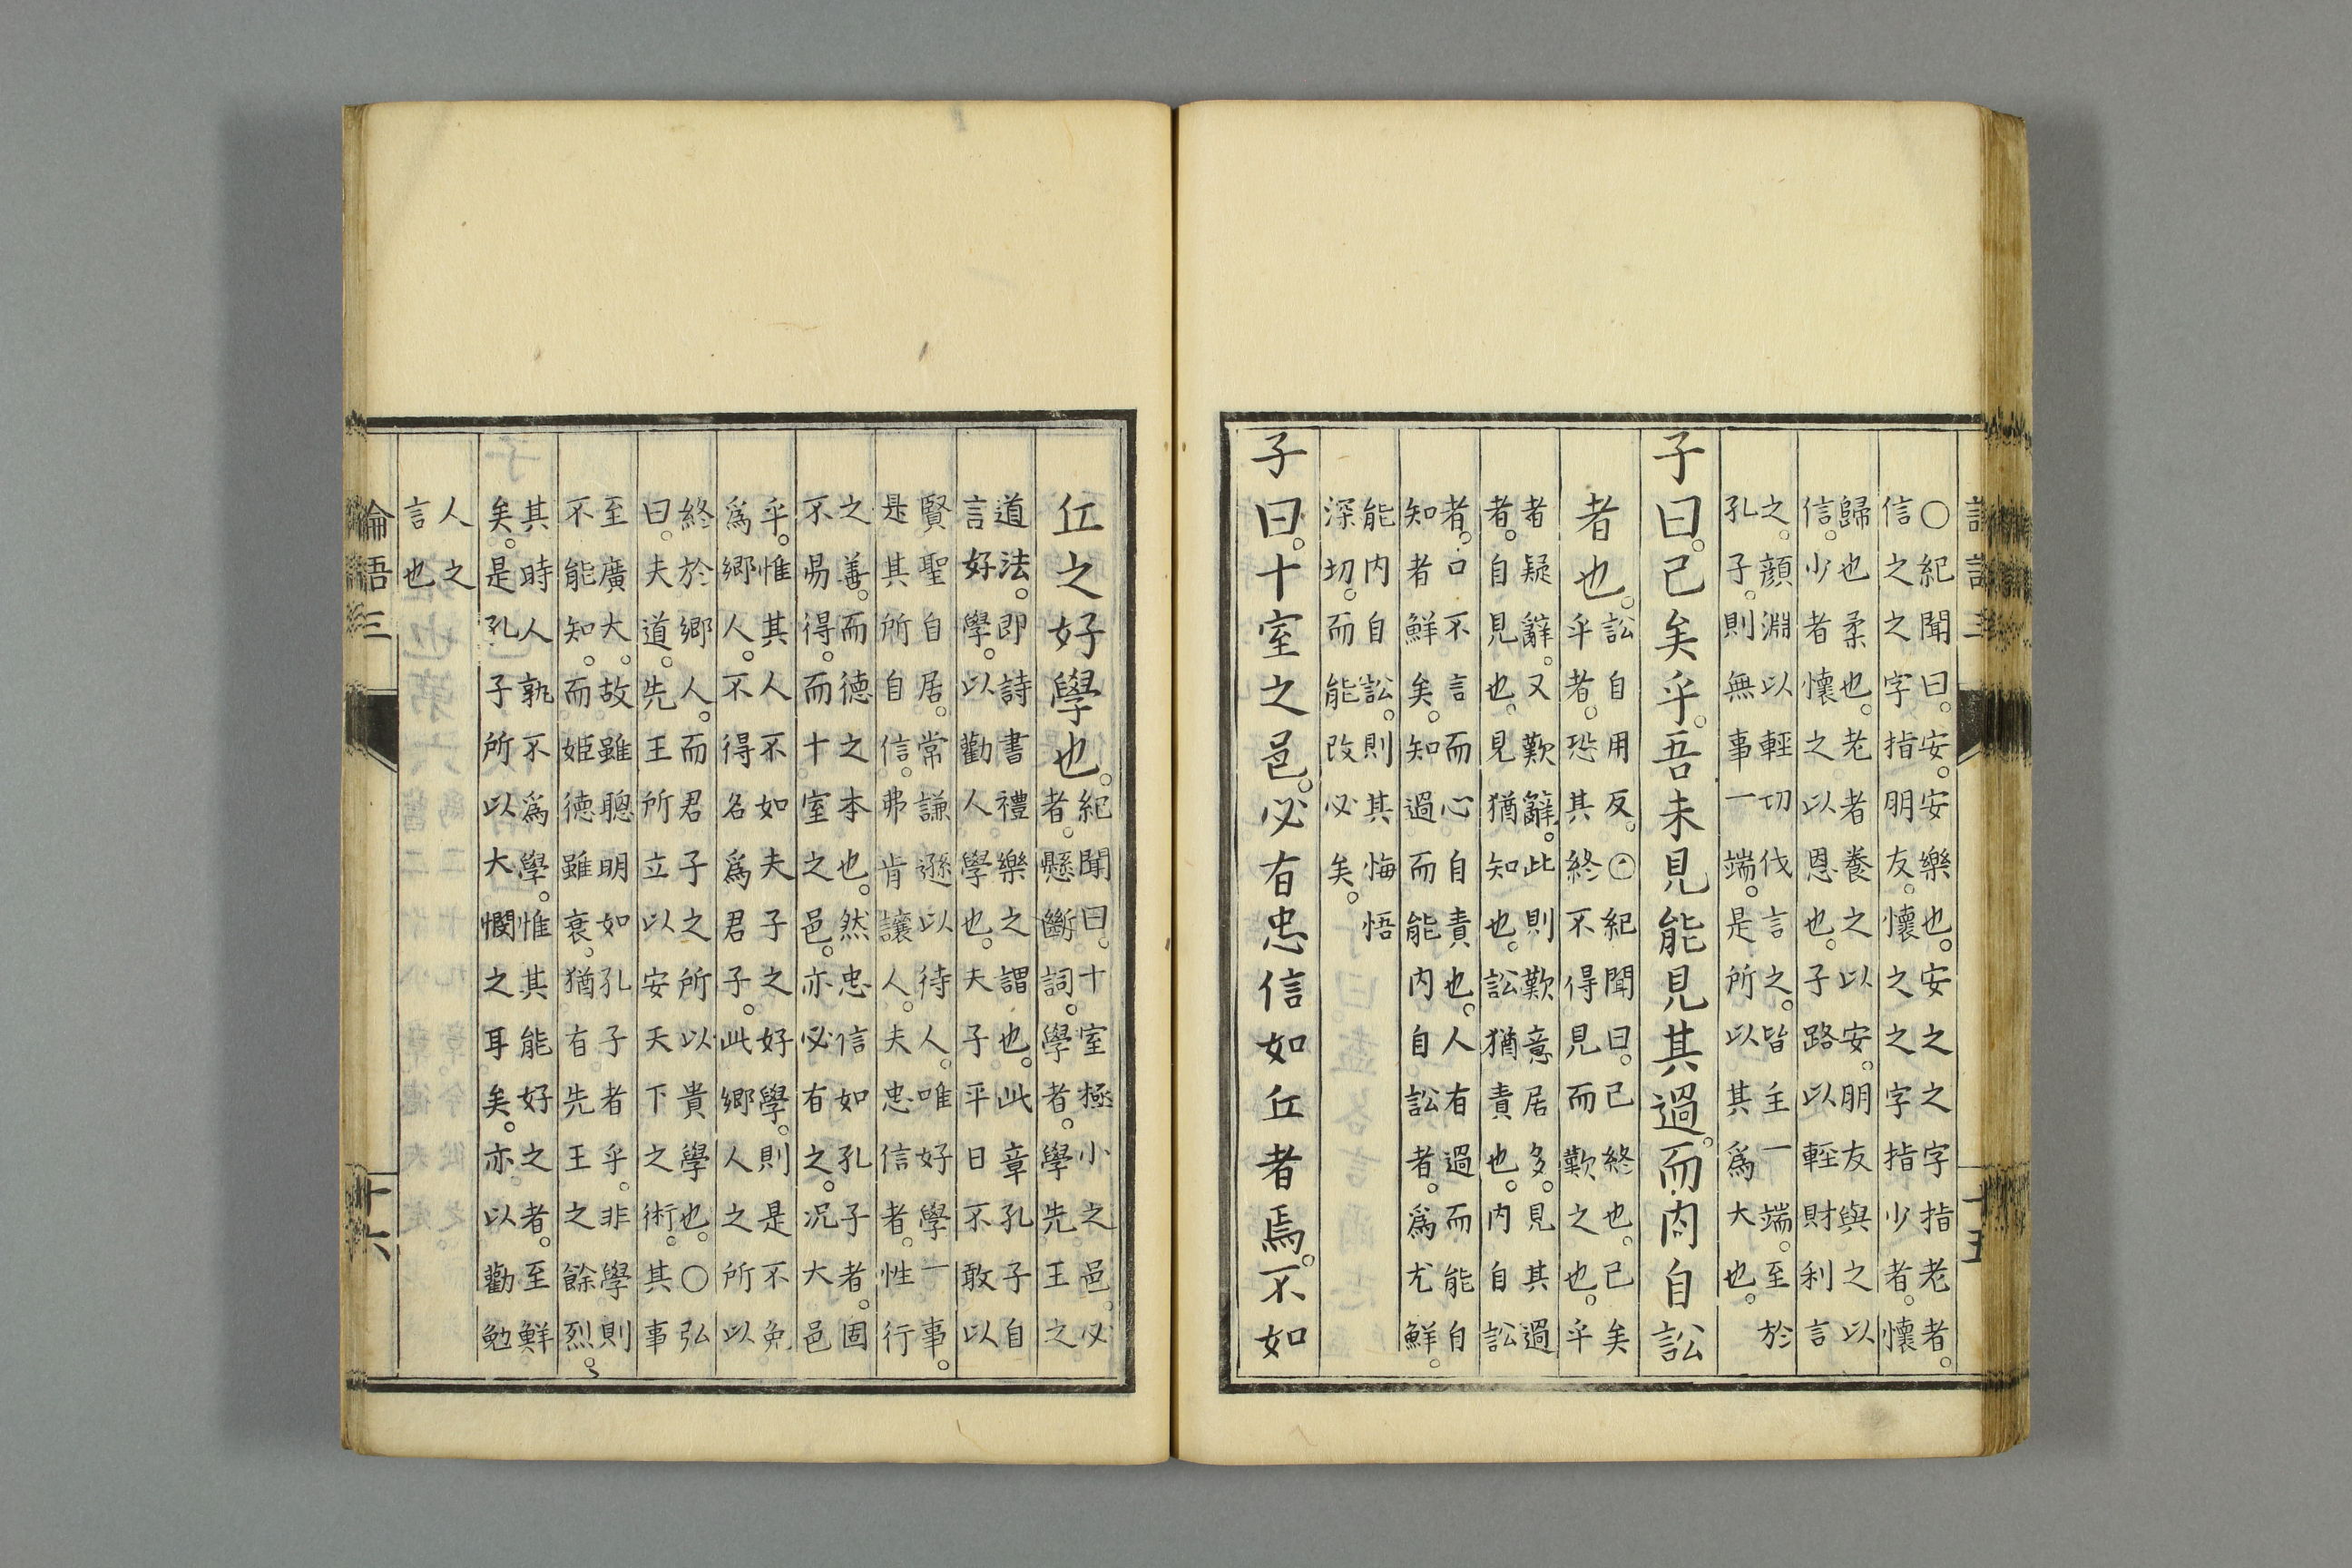 ○紀聞曰。安。安樂也。安之之字指老者。
信之之字指朋友。懷之之字指少者。懷
歸也柔也。老者養之以安。朋友與之以
信。少者懷之以恩也。子路以輕財利言
之。顏淵以輕切伐言之。皆主一端。至於
孔子。則無事一端。是所以其爲大也。
子曰。已矣乎。吾未見能見其過。而內自訟
者也。
訟自用反。○紀聞曰。已終也。已矣
乎者。恐其終不得見而歎之也。乎
者疑辭。又歎辭。此則歎意居多。見其過
者。自見也。見猶知也。訟猶責也。內自訟
者。口不言而心自責也。人有過而能自
知者鮮矣。知過而能內自訟者。爲尤鮮。
能內自訟。則其悔悟
深切。而能改必矣。
子曰。十室之邑。必有忠信如丘者焉。不如
丘之好學也。
紀聞曰。十室極小之邑。必
者。懸斷詞。學者。學先王之
道法。即詩書禮樂之謂也。此章孔子自
言好學。以勸人學也。夫子平日不敢以
賢聖自居。常謙遜以待人。唯好學一事。
是其所自信。弗肯讓人。夫忠信者。性行
之善。而德之本也。然忠信如孔子者。固
不易得。而十室之邑。亦必有之。況大邑
乎。惟其人不如夫子之好學。則是不免
爲鄉人。不得名爲君子。此鄉人之所以
終於鄉人。而君子之所以貴學也。○弘
曰。夫道。先王所立以安天下之術。其事
至廣大。故雖聰明如孔子者乎。非學則
不能知。而姬德雖衰。猶有先王之餘烈。
其時人孰不爲學。惟其能好之者。至鮮
矣。是孔子所以大憫之耳矣。亦以勸勉
人之
言也
論語三
十六